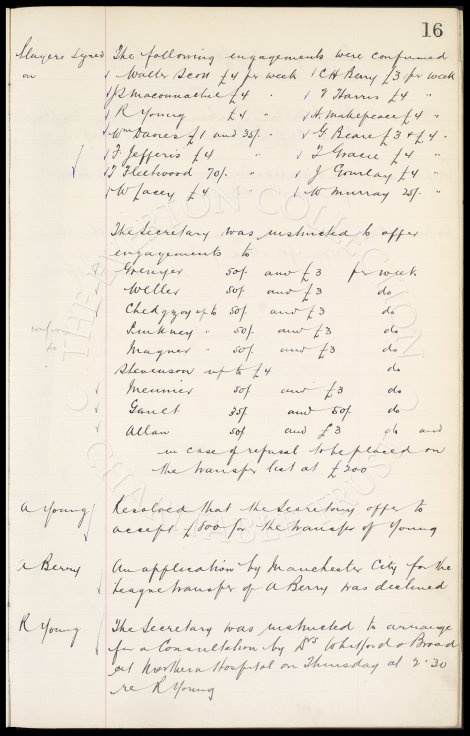 16
Players Signed on
The following engagements were confirmed
Walter Scott £4 per week
C H Berry £3 per week
J S Maconnachie £4 "
V Harris £4 "
R Young £4 "
H. Makepeace £4 "
Wm Davies £1 and 35/- "
G. Beare £3 & £4 "
F. Jefferis £4 "
T Gracie £4 "
T Fleetwood 70/- "
J Gourlay £4 "
W Lacey £4 "
W Murray 25/- "
The Secretary was instructed to offer
engagements to
Grenyer 50/- and £3 per week
Weller 50/- and £3 do
Chedgzoy up to 50/- and £3 do
Pinkney " 50/- and £3 do
Magner " 50/- and £3 do
Stevenson up to £4 do
Meunier 50/- and £3 do
Gault 35/- and 50/- do
Allan 50/- and £3 do and
in case of refusal to be placed on
the transfer list at £200
A Young
Resolved that the Secretary offer to
accept £800 for the transfer of Young
A Berry
An application by Manchester City for the
League transfer of A Berry was declined
R Young
The Secretary was instructed to arrange
for a Consultation by Drs Whitford & Broad
at Northern Hospital on Thursday at 2.30
re R Young
THE EVERTON COLLECTION
CHARITABLE TRUST